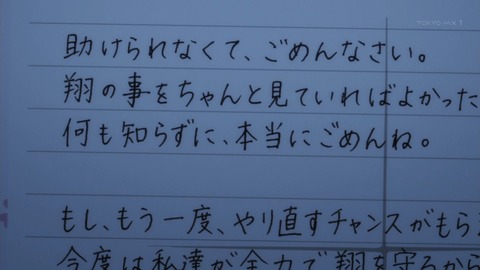 TOKYO MX 1
助けられなくて、ごめんなさい。
翔の事をちゃんと見ていればよかった
何も知らずに、本当にごめんね。
もし、もう一度、やり直すチャンスがもら
今度は私達が全力で翔を守るから